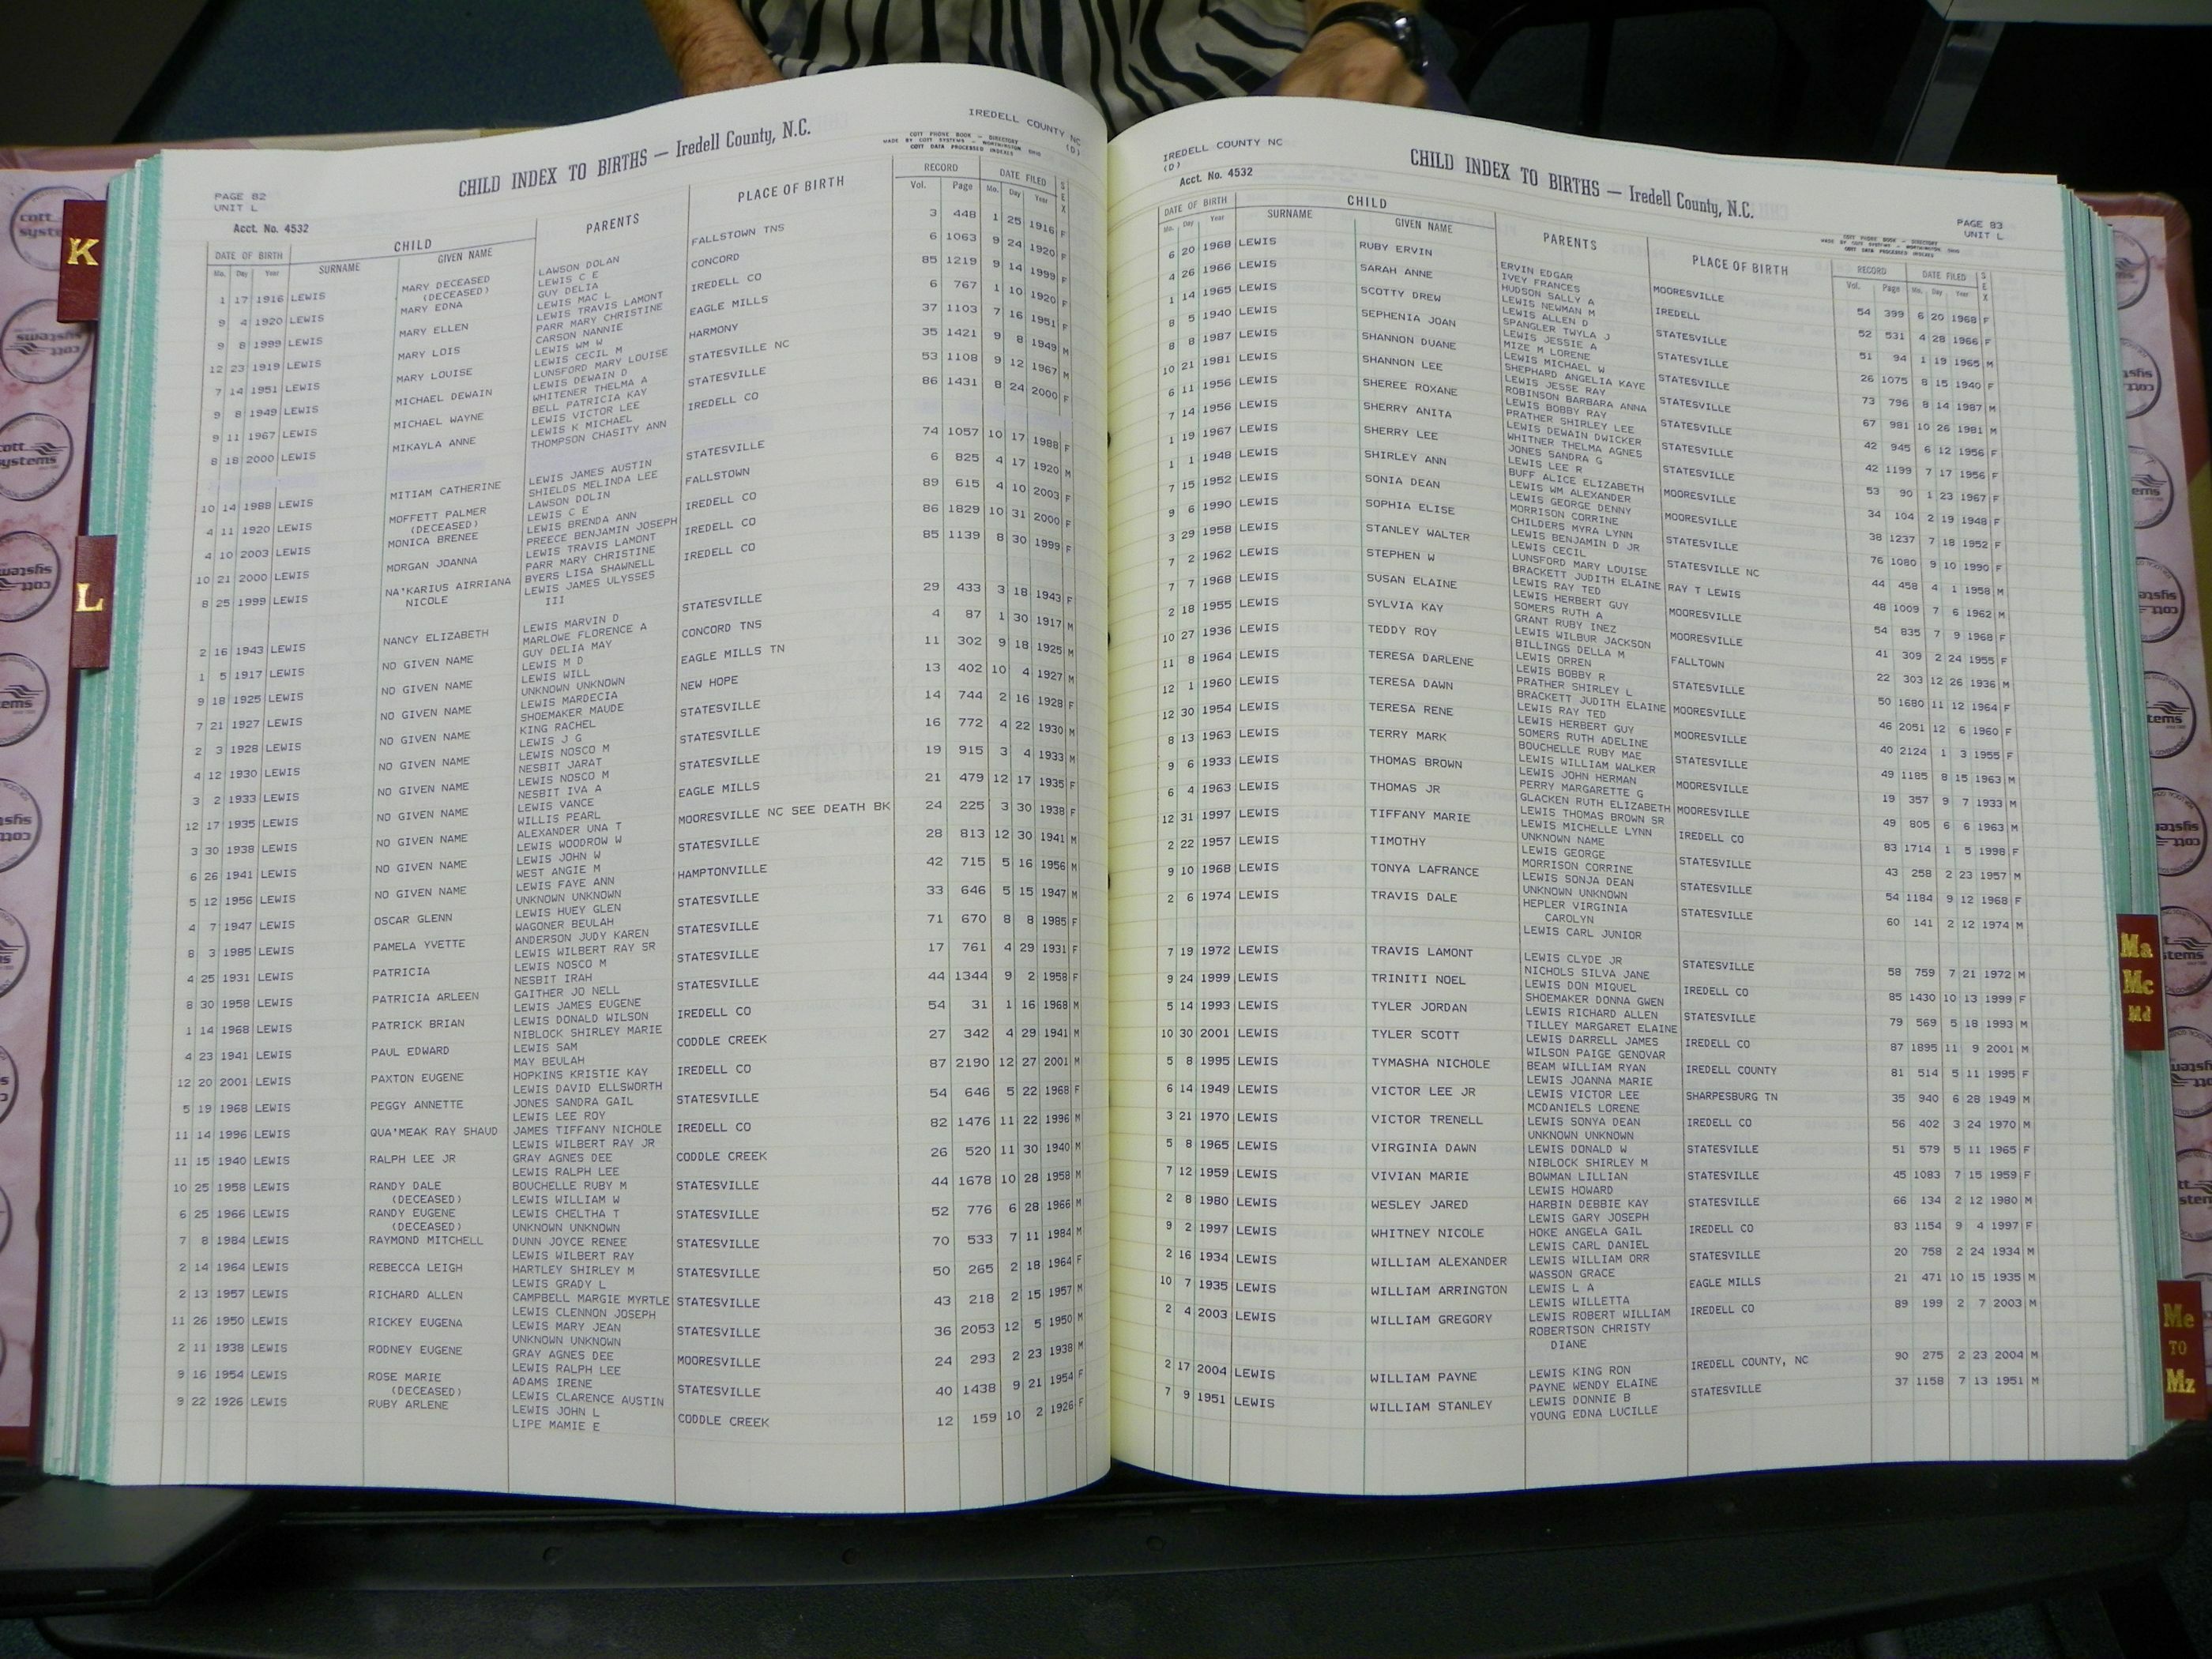 IREDELL COUNTY NC
(D)
CHILD INDEX TO BIRTHS — Iredell County, N.C.
COTT PHONE BOOK — DIRECTORY
MADE BY COTT SYSTEMS — WORTHINGTON OHIO
COTT DATA PROCESSED INDEXES
PAGE 82
UNIT L
Acct. No. 4532
DATE OF BIRTH CHILD PARENTS PLACE OF BIRTH RECORD DATE FILED SEX
Mo. Day Year SURNAME GIVEN NAME Vol. Page Mo. Day Year
1 17 1916 LEWIS MARY DECEASED LAWSON DOLAN FALLSTOWN TNS 3 448 1 25 1916 F
(DECEASED) LEWIS C E
9 4 1920 LEWIS MARY EDNA GUY DELIA CONCORD 6 1063 9 24 1920 F
LEWIS MAC L
9 8 1999 LEWIS MARY ELLEN LEWIS TRAVIS LAMONT IREDELL CO 85 1219 9 14 1999 F
PARR MARY CHRISTINE
12 23 1919 LEWIS MARY LOIS CARSON NANNIE EAGLE MILLS 6 767 1 10 1920 F
LEWIS WM W
7 14 1951 LEWIS MARY LOUISE LEWIS CECIL M HARMONY 37 1103 7 16 1951 F
LUNSFORD MARY LOUISE
9 8 1949 LEWIS MICHAEL DEWAIN LEWIS DEWAIN D STATESVILLE NC 35 1421 9 8 1949 M
WHITENER THELMA A
9 11 1967 LEWIS MICHAEL WAYNE BELL PATRICIA KAY STATESVILLE 53 1108 9 12 1967 M
LEWIS VICTOR LEE
8 18 2000 LEWIS MIKAYLA ANNE LEWIS K MICHAEL IREDELL CO 86 1431 8 24 2000 F
THOMPSON CHASITY ANN
10 14 1988 LEWIS MITIAM CATHERINE LEWIS JAMES AUSTIN STATESVILLE 74 1057 10 17 1988 F
SHIELDS MELINDA LEE
4 11 1920 LEWIS MOFFETT PALMER LAWSON DOLIN FALLSTOWN 6 825 4 17 1920 M
(DECEASED) LEWIS C E
4 10 2003 LEWIS MONICA BRENEE LEWIS BRENDA ANN IREDELL CO 89 615 4 10 2003 F
PREECE BENJAMIN JOSEPH
10 21 2000 LEWIS MORGAN JOANNA LEWIS TRAVIS LAMONT IREDELL CO 86 1829 10 31 2000 F
PARR MARY CHRISTINE
8 25 1999 LEWIS NA'KARIUS AIRRIANA BYERS LISA SHAWNELL IREDELL CO 85 1139 8 30 1999 F
NICOLE LEWIS JAMES ULYSSES
III
2 16 1943 LEWIS NANCY ELIZABETH LEWIS MARVIN D STATESVILLE 29 433 3 18 1943 F
MARLOWE FLORENCE A
1 5 1917 LEWIS NO GIVEN NAME GUY DELIA MAY CONCORD TNS 4 87 1 30 1917 M
LEWIS M D
9 18 1925 LEWIS NO GIVEN NAME LEWIS WILL EAGLE MILLS TN 11 302 9 18 1925 M
UNKNOWN UNKNOWN
7 21 1927 LEWIS NO GIVEN NAME LEWIS MARDECIA NEW HOPE 13 402 10 4 1927 M
SHOEMAKER MAUDE
2 3 1928 LEWIS NO GIVEN NAME KING RACHEL STATESVILLE 14 744 2 16 1928 F
LEWIS J G
4 12 1930 LEWIS NO GIVEN NAME LEWIS NOSCO M STATESVILLE 16 772 4 22 1930 M
NESBIT JARAT
3 2 1933 LEWIS NO GIVEN NAME LEWIS NOSCO M STATESVILLE 19 915 3 4 1933 M
NESBIT IVA A
12 17 1935 LEWIS NO GIVEN NAME LEWIS VANCE EAGLE MILLS 21 479 12 17 1935 F
WILLIS PEARL
3 30 1938 LEWIS NO GIVEN NAME ALEXANDER UNA T MOORESVILLE NC SEE DEATH BK 24 225 3 30 1938 F
LEWIS WOODROW W
6 26 1941 LEWIS NO GIVEN NAME LEWIS JOHN W STATESVILLE 28 813 12 30 1941 M
WEST ANGIE M
5 12 1956 LEWIS NO GIVEN NAME LEWIS FAYE ANN HAMPTONVILLE 42 715 5 16 1956 M
UNKNOWN UNKNOWN
4 7 1947 LEWIS OSCAR GLENN LEWIS HUEY GLEN STATESVILLE 33 646 5 15 1947 M
WAGONER BEULAH
8 3 1985 LEWIS PAMELA YVETTE ANDERSON JUDY KAREN STATESVILLE 71 670 8 8 1985 F
LEWIS WILBERT RAY SR
4 25 1931 LEWIS PATRICIA LEWIS NOSCO M STATESVILLE 17 761 4 29 1931 F
NESBIT IRAH
8 30 1958 LEWIS PATRICIA ARLEEN GAITHER JO NELL STATESVILLE 44 1344 9 2 1958 F
LEWIS JAMES EUGENE
1 14 1968 LEWIS PATRICK BRIAN LEWIS DONALD WILSON IREDELL CO 54 31 1 16 1968 M
NIBLOCK SHIRLEY MARIE
4 23 1941 LEWIS PAUL EDWARD LEWIS SAM CODDLE CREEK 27 342 4 29 1941 M
MAY BEULAH
12 20 2001 LEWIS PAXTON EUGENE HOPKINS KRISTIE KAY IREDELL CO 87 2190 12 27 2001 M
LEWIS DAVID ELLSWORTH
5 19 1968 LEWIS PEGGY ANNETTE JONES SANDRA GAIL STATESVILLE 54 646 5 22 1968 F
LEWIS LEE ROY
11 14 1996 LEWIS QUA'MEAK RAY SHAUD JAMES TIFFANY NICHOLE IREDELL CO 82 1476 11 22 1996 M
LEWIS WILBERT RAY JR
11 15 1940 LEWIS RALPH LEE JR GRAY AGNES DEE CODDLE CREEK 26 520 11 30 1940 M
LEWIS RALPH LEE
10 25 1958 LEWIS RANDY DALE BOUCHELLE RUBY M STATESVILLE 44 1678 10 28 1958 M
(DECEASED) LEWIS WILLIAM W
6 25 1966 LEWIS RANDY EUGENE LEWIS CHELTHA T STATESVILLE 52 776 6 28 1966 M
(DECEASED) UNKNOWN UNKNOWN
7 8 1984 LEWIS RAYMOND MITCHELL DUNN JOYCE RENEE STATESVILLE 70 533 7 11 1984 M
LEWIS WILBERT RAY
2 14 1964 LEWIS REBECCA LEIGH HARTLEY SHIRLEY M STATESVILLE 50 265 2 18 1964 F
LEWIS GRADY L
2 13 1957 LEWIS RICHARD ALLEN CAMPBELL MARGIE MYRTLE STATESVILLE 43 218 2 15 1957 M
LEWIS CLENNON JOSEPH
11 26 1950 LEWIS RICKEY EUGENA LEWIS MARY JEAN STATESVILLE 36 2053 12 5 1950 M
UNKNOWN UNKNOWN
2 11 1938 LEWIS RODNEY EUGENE GRAY AGNES DEE MOORESVILLE 24 293 2 23 1938 M
LEWIS RALPH LEE
9 16 1954 LEWIS ROSE MARIE ADAMS IRENE STATESVILLE 40 1438 9 21 1954 F
(DECEASED) LEWIS CLARENCE AUSTIN
9 22 1926 LEWIS RUBY ARLENE LEWIS JOHN L CODDLE CREEK 12 159 10 2 1926 F
LIPE MAMIE E
IREDELL COUNTY NC
(D)
Acct. No. 4532
CHILD INDEX TO BIRTHS — Iredell County, N.C.
PAGE 83
UNIT L
COTT PHONE BOOK — DIRECTORY
MADE BY COTT SYSTEMS — WORTHINGTON OHIO
COTT DATA PROCESSED INDEXES
DATE OF BIRTH CHILD PARENTS PLACE OF BIRTH RECORD DATE FILED SEX
Mo. Day Year SURNAME GIVEN NAME Vol. Page Mo. Day Year
6 20 1968 LEWIS RUBY ERVIN ERVIN EDGAR MOORESVILLE 54 399 6 20 1968 F
IVEY FRANCES
4 26 1966 LEWIS SARAH ANNE HUDSON SALLY A IREDELL 52 531 4 28 1966 F
LEWIS NEWMAN M
1 14 1965 LEWIS SCOTTY DREW LEWIS ALLEN D STATESVILLE 51 94 1 19 1965 M
SPANGLER TWYLA J
8 5 1940 LEWIS SEPHENIA JOAN LEWIS JESSIE A STATESVILLE 26 1075 8 15 1940 F
MIZE M LORENE
8 8 1987 LEWIS SHANNON DUANE LEWIS MICHAEL W STATESVILLE 73 796 8 14 1987 M
SHEPHARD ANGELIA KAYE
10 21 1981 LEWIS SHANNON LEE LEWIS JESSE RAY STATESVILLE 67 981 10 26 1981 M
ROBINSON BARBARA ANNA
6 11 1956 LEWIS SHEREE ROXANE LEWIS BOBBY RAY STATESVILLE 42 945 6 12 1956 F
PRATHER SHIRLEY LEE
7 14 1956 LEWIS SHERRY ANITA LEWIS DEWAIN DWICKER STATESVILLE 42 1199 7 17 1956 F
WHITNER THELMA AGNES
1 19 1967 LEWIS SHERRY LEE JONES SANDRA G MOORESVILLE 53 90 1 23 1967 F
LEWIS LEE R
1 1 1948 LEWIS SHIRLEY ANN BUFF ALICE ELIZABETH MOORESVILLE 34 104 2 19 1948 F
LEWIS WM ALEXANDER
7 15 1952 LEWIS SONIA DEAN LEWIS GEORGE DENNY STATESVILLE 38 1237 7 18 1952 F
MORRISON CORRINE
9 6 1990 LEWIS SOPHIA ELISE CHILDERS MYRA LYNN STATESVILLE NC 76 1080 9 10 1990 F
LEWIS BENJAMIN D JR
3 29 1958 LEWIS STANLEY WALTER LEWIS CECIL RAY T LEWIS 44 458 4 1 1958 M
LUNSFORD MARY LOUISE
7 2 1962 LEWIS STEPHEN W BRACKETT JUDITH ELAINE MOORESVILLE 48 1009 7 6 1962 M
LEWIS RAY TED
7 7 1968 LEWIS SUSAN ELAINE LEWIS HERBERT GUY MOORESVILLE 54 835 7 9 1968 F
SOMERS RUTH A
2 18 1955 LEWIS SYLVIA KAY GRANT RUBY INEZ FALLTOWN 41 309 2 24 1955 F
LEWIS WILBUR JACKSON
10 27 1936 LEWIS TEDDY ROY BILLINGS DELLA M STATESVILLE 22 303 12 26 1936 M
LEWIS ORREN
11 8 1964 LEWIS TERESA DARLENE LEWIS BOBBY R MOORESVILLE 50 1680 11 12 1964 F
PRATHER SHIRLEY L
12 1 1960 LEWIS TERESA DAWN BRACKETT JUDITH ELAINE MOORESVILLE 46 2051 12 6 1960 F
LEWIS RAY TED
12 30 1954 LEWIS TERESA RENE LEWIS HERBERT GUY STATESVILLE 40 2124 1 3 1955 F
SOMERS RUTH ADELINE
8 13 1963 LEWIS TERRY MARK BOUCHELLE RUBY MAE MOORESVILLE 49 1185 8 15 1963 M
LEWIS WILLIAM WALKER
9 6 1933 LEWIS THOMAS BROWN LEWIS JOHN HERMAN MOORESVILLE 19 357 9 7 1933 M
PERRY MARGARETTE G
6 4 1963 LEWIS THOMAS JR GLACKEN RUTH ELIZABETH IREDELL CO 49 805 6 6 1963 M
LEWIS THOMAS BROWN SR
12 31 1997 LEWIS TIFFANY MARIE LEWIS MICHELLE LYNN STATESVILLE 83 1714 1 5 1998 F
UNKNOWN NAME
2 22 1957 LEWIS TIMOTHY LEWIS GEORGE STATESVILLE 43 258 2 23 1957 M
MORRISON CORRINE
9 10 1968 LEWIS TONYA LAFRANCE LEWIS SONJA DEAN STATESVILLE 54 1184 9 12 1968 F
UNKNOWN UNKNOWN
2 6 1974 LEWIS TRAVIS DALE HEPLER VIRGINIA 60 141 2 12 1974 M
CAROLYN
LEWIS CARL JUNIOR
7 19 1972 LEWIS TRAVIS LAMONT LEWIS CLYDE JR STATESVILLE 58 759 7 21 1972 M
NICHOLS SILVA JANE
9 24 1999 LEWIS TRINITI NOEL LEWIS DON MIQUEL IREDELL CO 85 1430 10 13 1999 F
SHOEMAKER DONNA GWEN
5 14 1993 LEWIS TYLER JORDAN LEWIS RICHARD ALLEN STATESVILLE 79 569 5 18 1993 M
TILLEY MARGARET ELAINE
10 30 2001 LEWIS TYLER SCOTT LEWIS DARRELL JAMES IREDELL CO 87 1895 11 9 2001 M
WILSON PAIGE GENOVAR
5 8 1995 LEWIS TYMASHA NICHOLE BEAM WILLIAM RYAN IREDELL COUNTY 81 514 5 11 1995 F
LEWIS JOANNA MARIE
6 14 1949 LEWIS VICTOR LEE JR LEWIS VICTOR LEE SHARPESBURG TN 35 940 6 28 1949 M
MCDANIELS LORENE
3 21 1970 LEWIS VICTOR TRENELL LEWIS SONYA DEAN IREDELL CO 56 402 3 24 1970 M
UNKNOWN UNKNOWN
5 8 1965 LEWIS VIRGINIA DAWN LEWIS DONALD W STATESVILLE 51 579 5 11 1965 F
NIBLOCK SHIRLEY M
7 12 1959 LEWIS VIVIAN MARIE BOWMAN LILLIAN STATESVILLE 45 1083 7 15 1959 F
LEWIS HOWARD
2 8 1980 LEWIS WESLEY JARED HARBIN DEBBIE KAY STATESVILLE 66 134 2 12 1980 M
LEWIS GARY JOSEPH
9 2 1997 LEWIS WHITNEY NICOLE HOKE ANGELA GAIL IREDELL CO 83 1154 9 4 1997 F
LEWIS CARL DANIEL
2 16 1934 LEWIS WILLIAM ALEXANDER LEWIS WILLIAM ORR STATESVILLE 20 758 2 24 1934 M
WASSON GRACE
10 7 1935 LEWIS WILLIAM ARRINGTON LEWIS L A EAGLE MILLS 21 471 10 15 1935 M
LEWIS WILLETTA
2 4 2003 LEWIS WILLIAM GREGORY LEWIS ROBERT WILLIAM IREDELL CO 89 199 2 7 2003 M
ROBERTSON CHRISTY
DIANE
2 17 2004 LEWIS WILLIAM PAYNE LEWIS KING RON IREDELL COUNTY, NC 90 275 2 23 2004 M
PAYNE WENDY ELAINE
7 9 1951 LEWIS WILLIAM STANLEY LEWIS DONNIE B STATESVILLE 37 1158 7 13 1951 M
YOUNG EDNA LUCILLE
K
L
Ma
Mc
Md
Me
TO
Mz
cott
systems